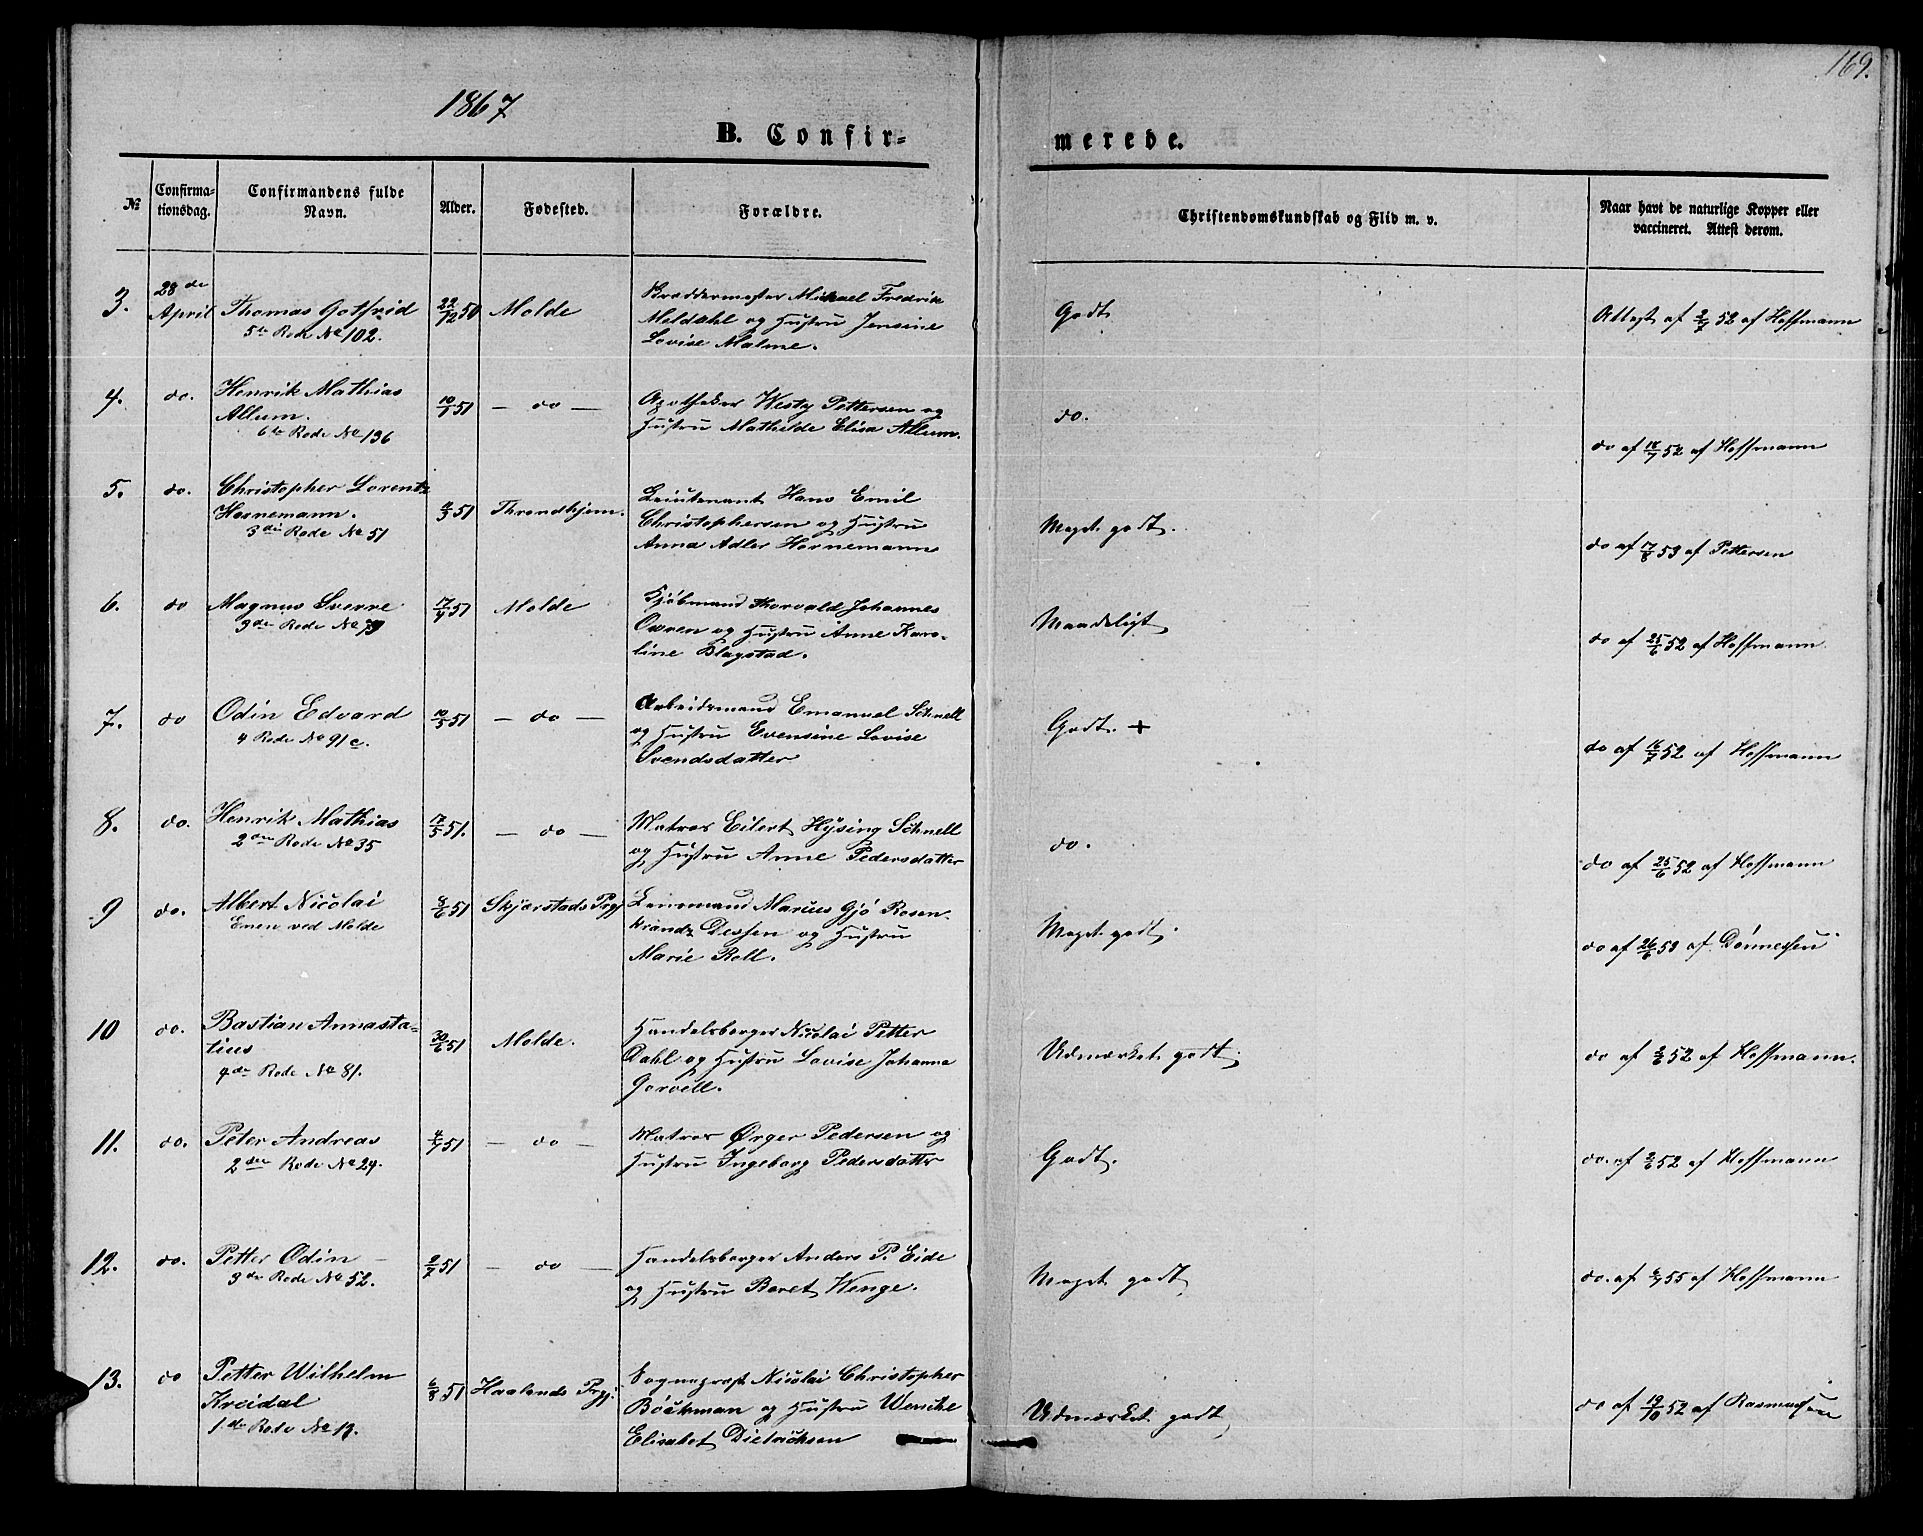 169.
1867
B. Confir=
merede.
№
Confirma-
tionsdag.
Confirmandens fulde
Navn.
Alder.
Fødested.
Forældre.
Christendomskundskab og Flid m. v.
Naar havt de naturlige Kopper eller
vaccineret. Attest derom.
3. 28de April Thomas Gotfrid 22/12 50 Molde
5te Rode No 102.
Michael Fredrik
Moldahl og Hustru Jensine
Lovise Malme.
Godt
Attest af 2/7 52 af Hoffmann
4. do. Henrik Mathias 10/1 51 — do —
Allum.
6te Rode No 136
Apotheker Westy Pettersen og
Hustru Mathilde Elisa Allum.
do.
do af 18/7 52 af Hoffmann
5. do. Christopher Lorentz
Hornemann. 51 Throndhjem.
3die Rode No 51
Leiutenant Hans Emil
Christophersen og Hustru
Anna Adler Hornemann
Meget godt.
do af 17/8 53 af Pettersen
6. do Magnus Sverre 17/4 51 Molde
3die Rode No 79
Kjøbmand Thorvald Johannes
Owren og Hustru Anne Karo-
line Blagstad.
Maadeligt
do af 25/6 52 af Hoffmann.
7. do Odin Edvard 10/5 51 — do —
4 Rode No 91c.
Arbeidsmand Emanuel Schnell
og Hustru Evensine Lovise
Svendsdatter
Godt. +
do af 16/7 52 af Hoffmann
8. do. Henrik Mathias 17/5 51. — do —
2den Rode No 35
Matros Eilert Hysing Schnell
og Hustru Anne Pedersdatter
do.
do af 25/6 52 af Hoffmann
9 do. Albert Nicolai 8/6 51 Skjerstads Prgj
Enen ved Molde
Lensmand Marius Gjø Rosen-
krandz Dessen og Hustru
Marie Roll.
Meget godt.
do af 26/6 53 af Dønnessen
10 do. Bastian Annasta=
tius 30/6 51 Molde.
4de Rode No 81.
Handelsborger Nicolai Petter
Dahl og Hustru Lovise Johanna
Gorvell.
Udmærket godt.
do af 2/6 52 af Hoffmann.
11. do. Peter Andreas 4/7 51 — do —
2den Rode No 29.
Matros Ørger Pedersen og
Hustru Ingeborg Pedersdatter
Godt.
do. af 2/6 52 af Hoffmann
12. do. Petter Odin — 9/7 51 — do —
3die Rode No 52.
Handelsborger Anders P. Eide
og Hustru Beret Wenge.
Meget godt
do. af 55 af Hoffmann
13. do Petter Wilhelm
Kreidal 6/8 51 Haalands Prgj.
1ste Rode No 12.
Sognepræst Nicolai Christopher
Böckman og Hustru Wenche
Elisabet Dietrichsen
Udmærket godt
do af 19/10 52 af Rasmussen